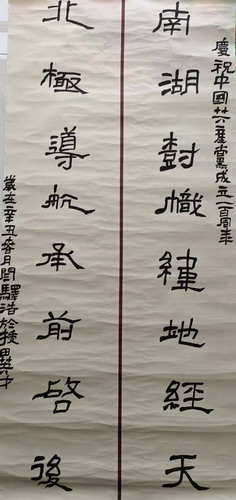 慶祝中國共產黨成立一百周年
南湖樹幟緯地經天
北極導航承前啓後
歲在辛丑冬月閆驛浩於揆思其中